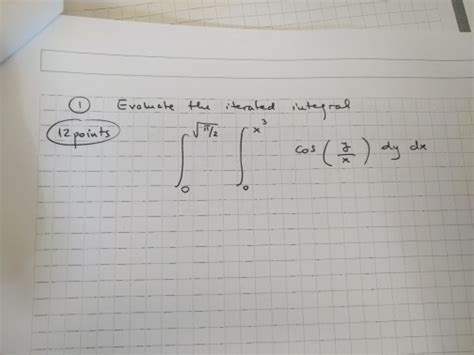 ① Evaluate the iterated integral
12 points
∫₀^√(π/2) ∫₀^x³ cos(y/x) dy dx